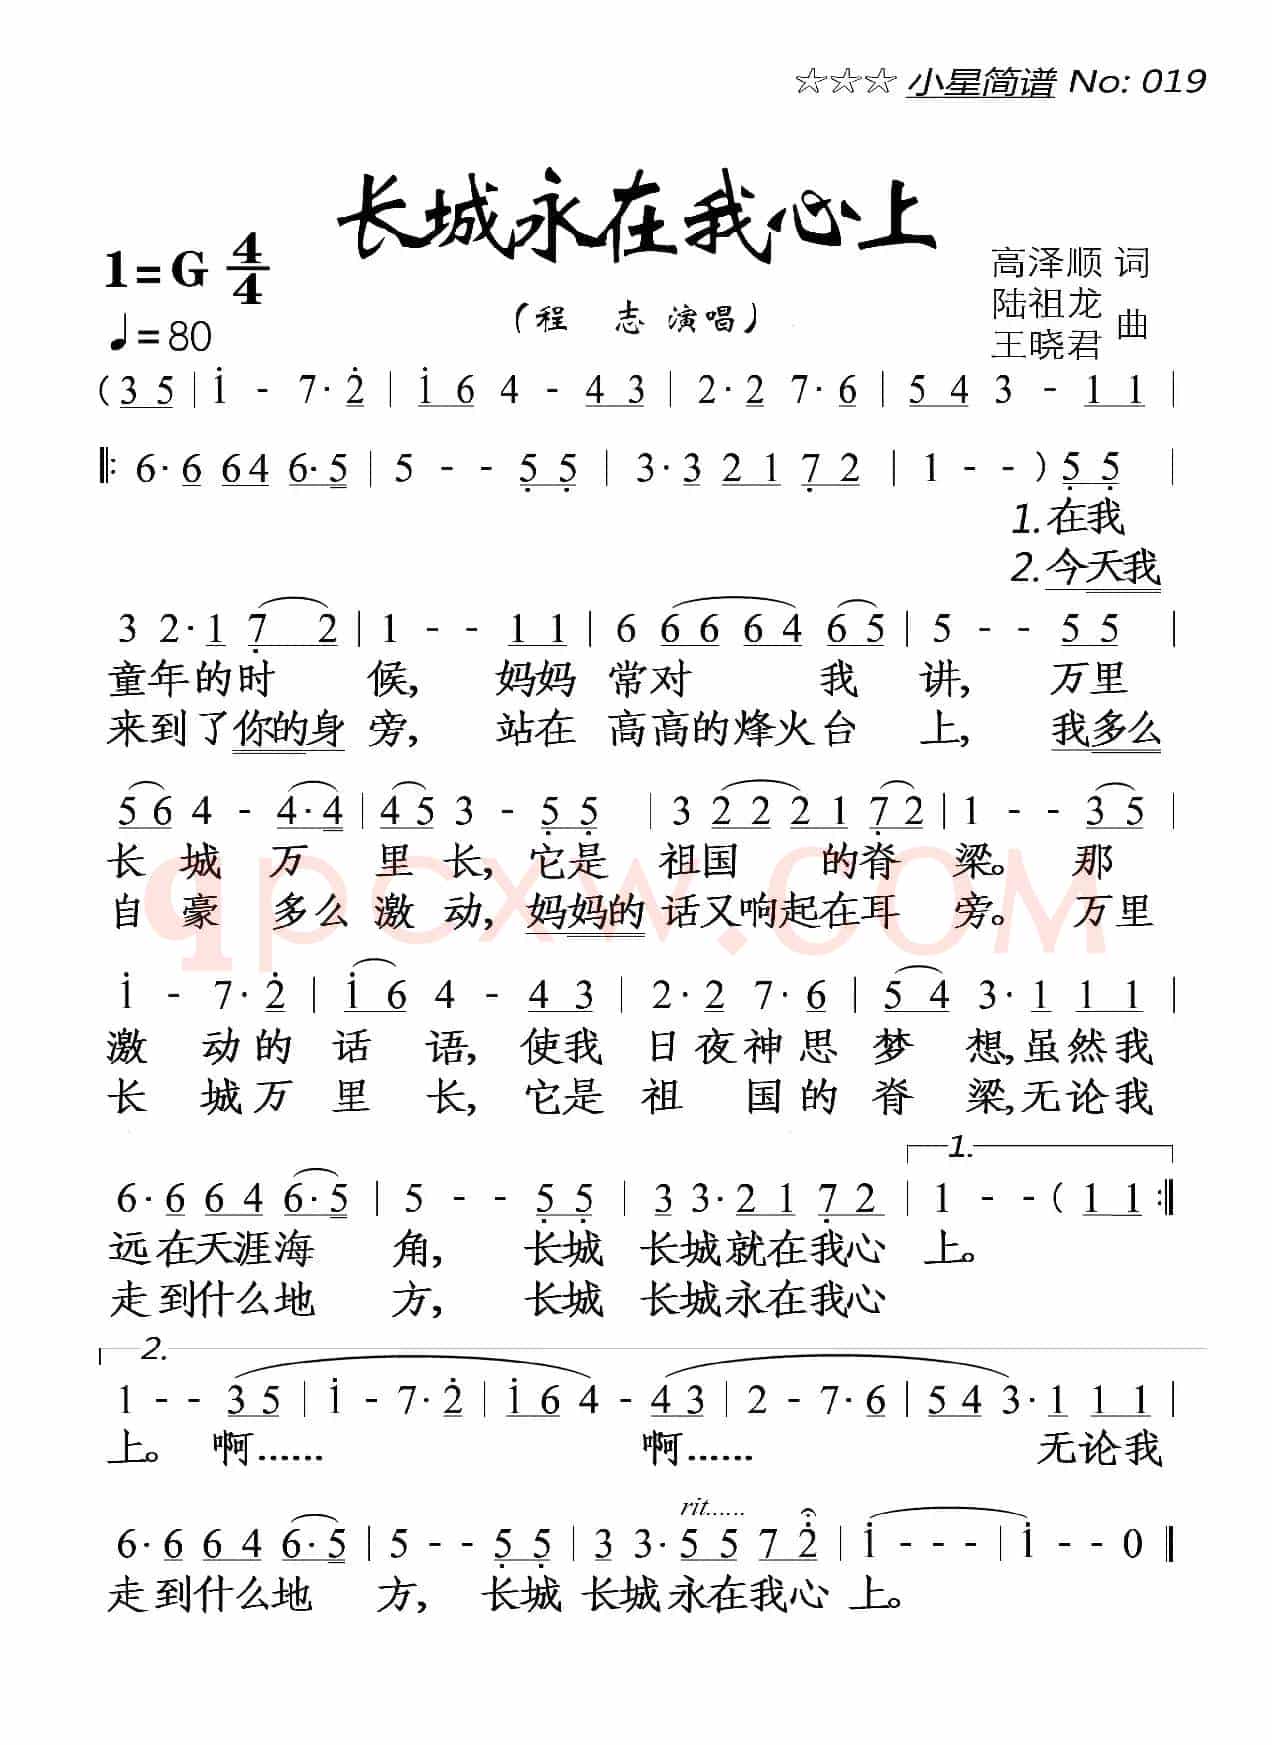 ☆☆☆ 小星简谱 No: 019
长城永在我心上
1=G 4/4
♩=80
(程 志 演唱)
高泽顺 词
陆祖龙
王晓君 曲
( 3 5 | i - 7· 2 | i 6 4 - 4 3 | 2· 2 7· 6 | 5 4 3 - 1 1 |
‖: 6· 6 6 4 6· 5 | 5 - - 5 5 | 3· 3 2 1 7 2 | 1 - - ) 5 5 |
1. 在我
2. 今天我
3 2· 1 7 2 | 1 - - 1 1 | 6 6 6 6 4 6 5 | 5 - - 5 5 |
童年的时 候, 妈妈 常对 我 讲, 万里
来到了你的身 旁, 站在 高高的烽火台 上, 我多么
5 6 4 - 4· 4 | 4 5 3 - 5 5 | 3 2 2 2 1 7 2 | 1 - - 3 5 |
长 城 万 里 长, 它是 祖国 的脊 梁。 那
自 豪 多么 激 动, 妈妈的 话又响起在耳 旁。 万里
i - 7· 2 | i 6 4 - 4 3 | 2· 2 7· 6 | 5 4 3· 1 1 1 |
激 动的 话 语, 使我 日夜神思 梦 想,虽然我
长 城万 里 长, 它是 祖 国的 脊 梁,无论我
1.
6· 6 6 4 6· 5 | 5 - - 5 5 | 3 3· 2 1 7 2 | 1 - - ( 1 1 :‖
远在天涯海 角, 长城 长城就在我心 上。
走到什么地 方, 长城 长城永在我心
2.
1 - - 3 5 | i - 7· 2 | i 6 4 - 4 3 | 2 - 7· 6 | 5 4 3· 1 1 1 |
上。 啊…… 啊…… 无论我
rit......
6· 6 6 4 6· 5 | 5 - - 5 5 | 3 3· 5 5 7 2 | i - - - | i - - 0 ‖
走到什么地 方, 长城 长城永在我心 上。
qpcxw.COM